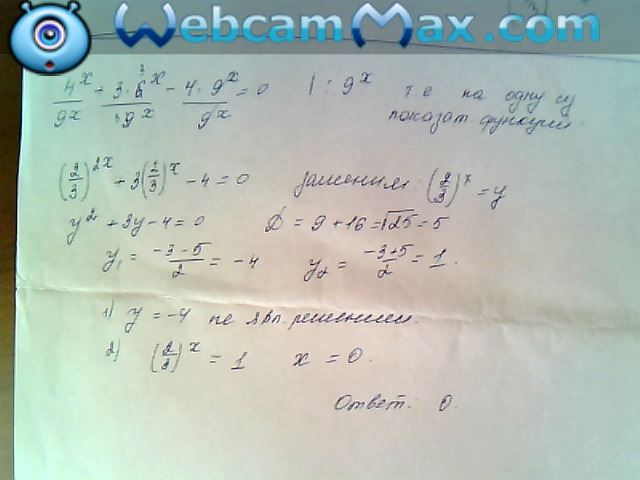 WebcamMax.com
4^x/9^x + 3·6^x/9^x - 4·9^x/9^x = 0 | : 9^x т.е на одну
показат функции.
(2/3)^2x + 3(2/3)^x - 4 = 0 заменим: (2/3)^x = y
y^2 + 3y - 4 = 0 D = 9 + 16 = √25 = 5
y₁ = -3-5/2 = -4 y₂ = -3+5/2 = 1.
1) y = -4 не явл решением.
2) (2/3)^x = 1 x = 0.
Ответ: 0.